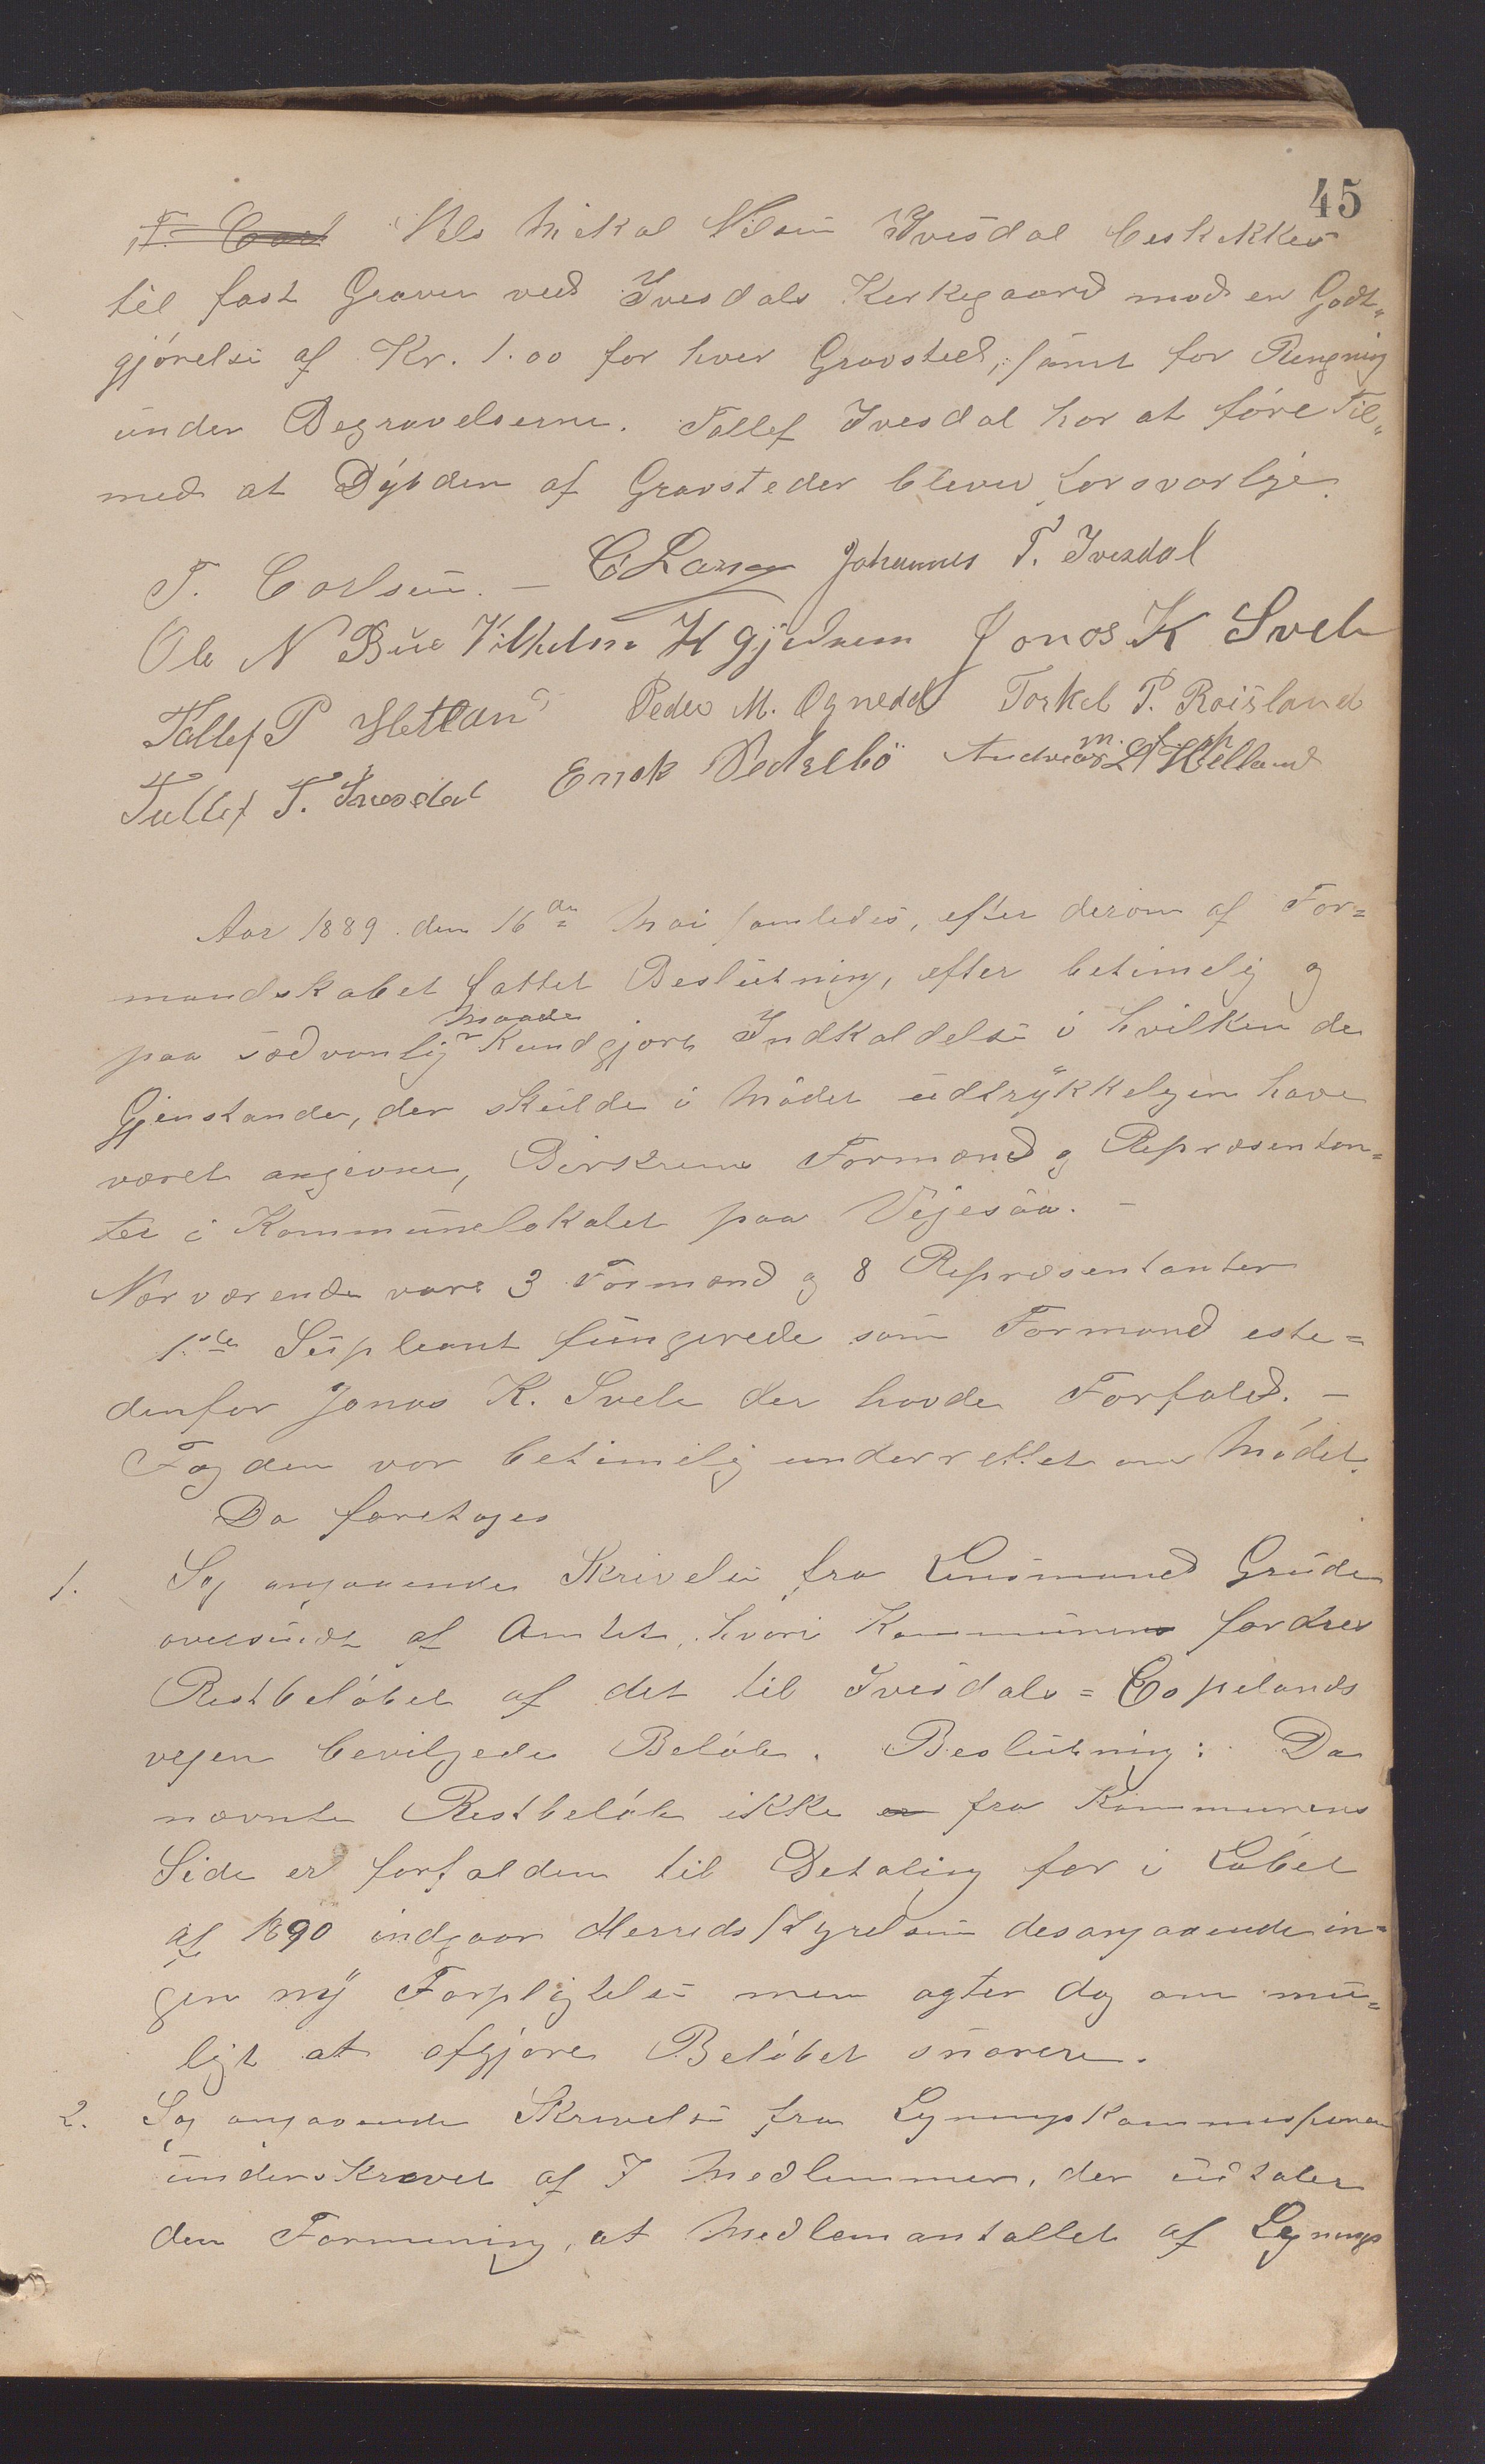 45
T. Carl Nils Mikal Nilsen Ivesdal beskikkes
til fast Graver ved Ivesdals Kirkegaard mod en Godt„
gjörelse af Kr. 1.00 for hver Gravsted, samt for Ringning
under Begravelserne. Tollef Ivesdal har at före Til„
med at Dybden af Gravsteder bliver forsvarlige.
T. Carlsen. – C Larsen Johannes T. Ivesdal
Ole N Bue Vilhelm H Gjedrem Jonas K Svele
Tollef P Hetland Peder M. Ognedal Torkel P. Røisland
Tollef T. Ivesdal Enok Pedersbö Andreas L Helland
m. f. P.
Aar 1889 den 16de Mai samledes, efter derom af For=
mandskabet fattet Beslutning, efter betimelig og
paa sædvanlig Maade Kundgjort Indkaldelse i hvilken de
Gjenstande, der skulde i Mödet udtrykkeligen have
været angivne, Birkrems Formænd og Repræsentan=
ter i Kommunelokalet paa Vigesaa. –
Nærværende vare 3 Formænd og 8 Repræsentanter
1ste Supleant fungerede som Formand iste=
denfor Jonas K. Svele der havde Forfald. –
Fogden var betimelig underrettet om Mödet.
Da foretoges
1. Sag angaaende Skrivelse fra Lensmand Grude
oversendt af Amtet, hvori Kommunens fordres
Restbelöbet af det til Ivesdals=Espelands
vejen bevilgede Belöb. Beslutning: Da
nævnte Restbelöb ikke er fra Kommunens
Side er forfalden til Betaling för i Löbet
af 1890 indgaar Herredsstyrelsen desangaaende in=
gen ny Forpligtelse men agter dog om mu=
ligt at afgjöre Belöbet snarere.
2. Sag angaaende Skrivelse fra Ligningskommissionen
underskrevet af 7 Medlemmer, der udtaler
den Formening, at Medlemantallet af Lignings